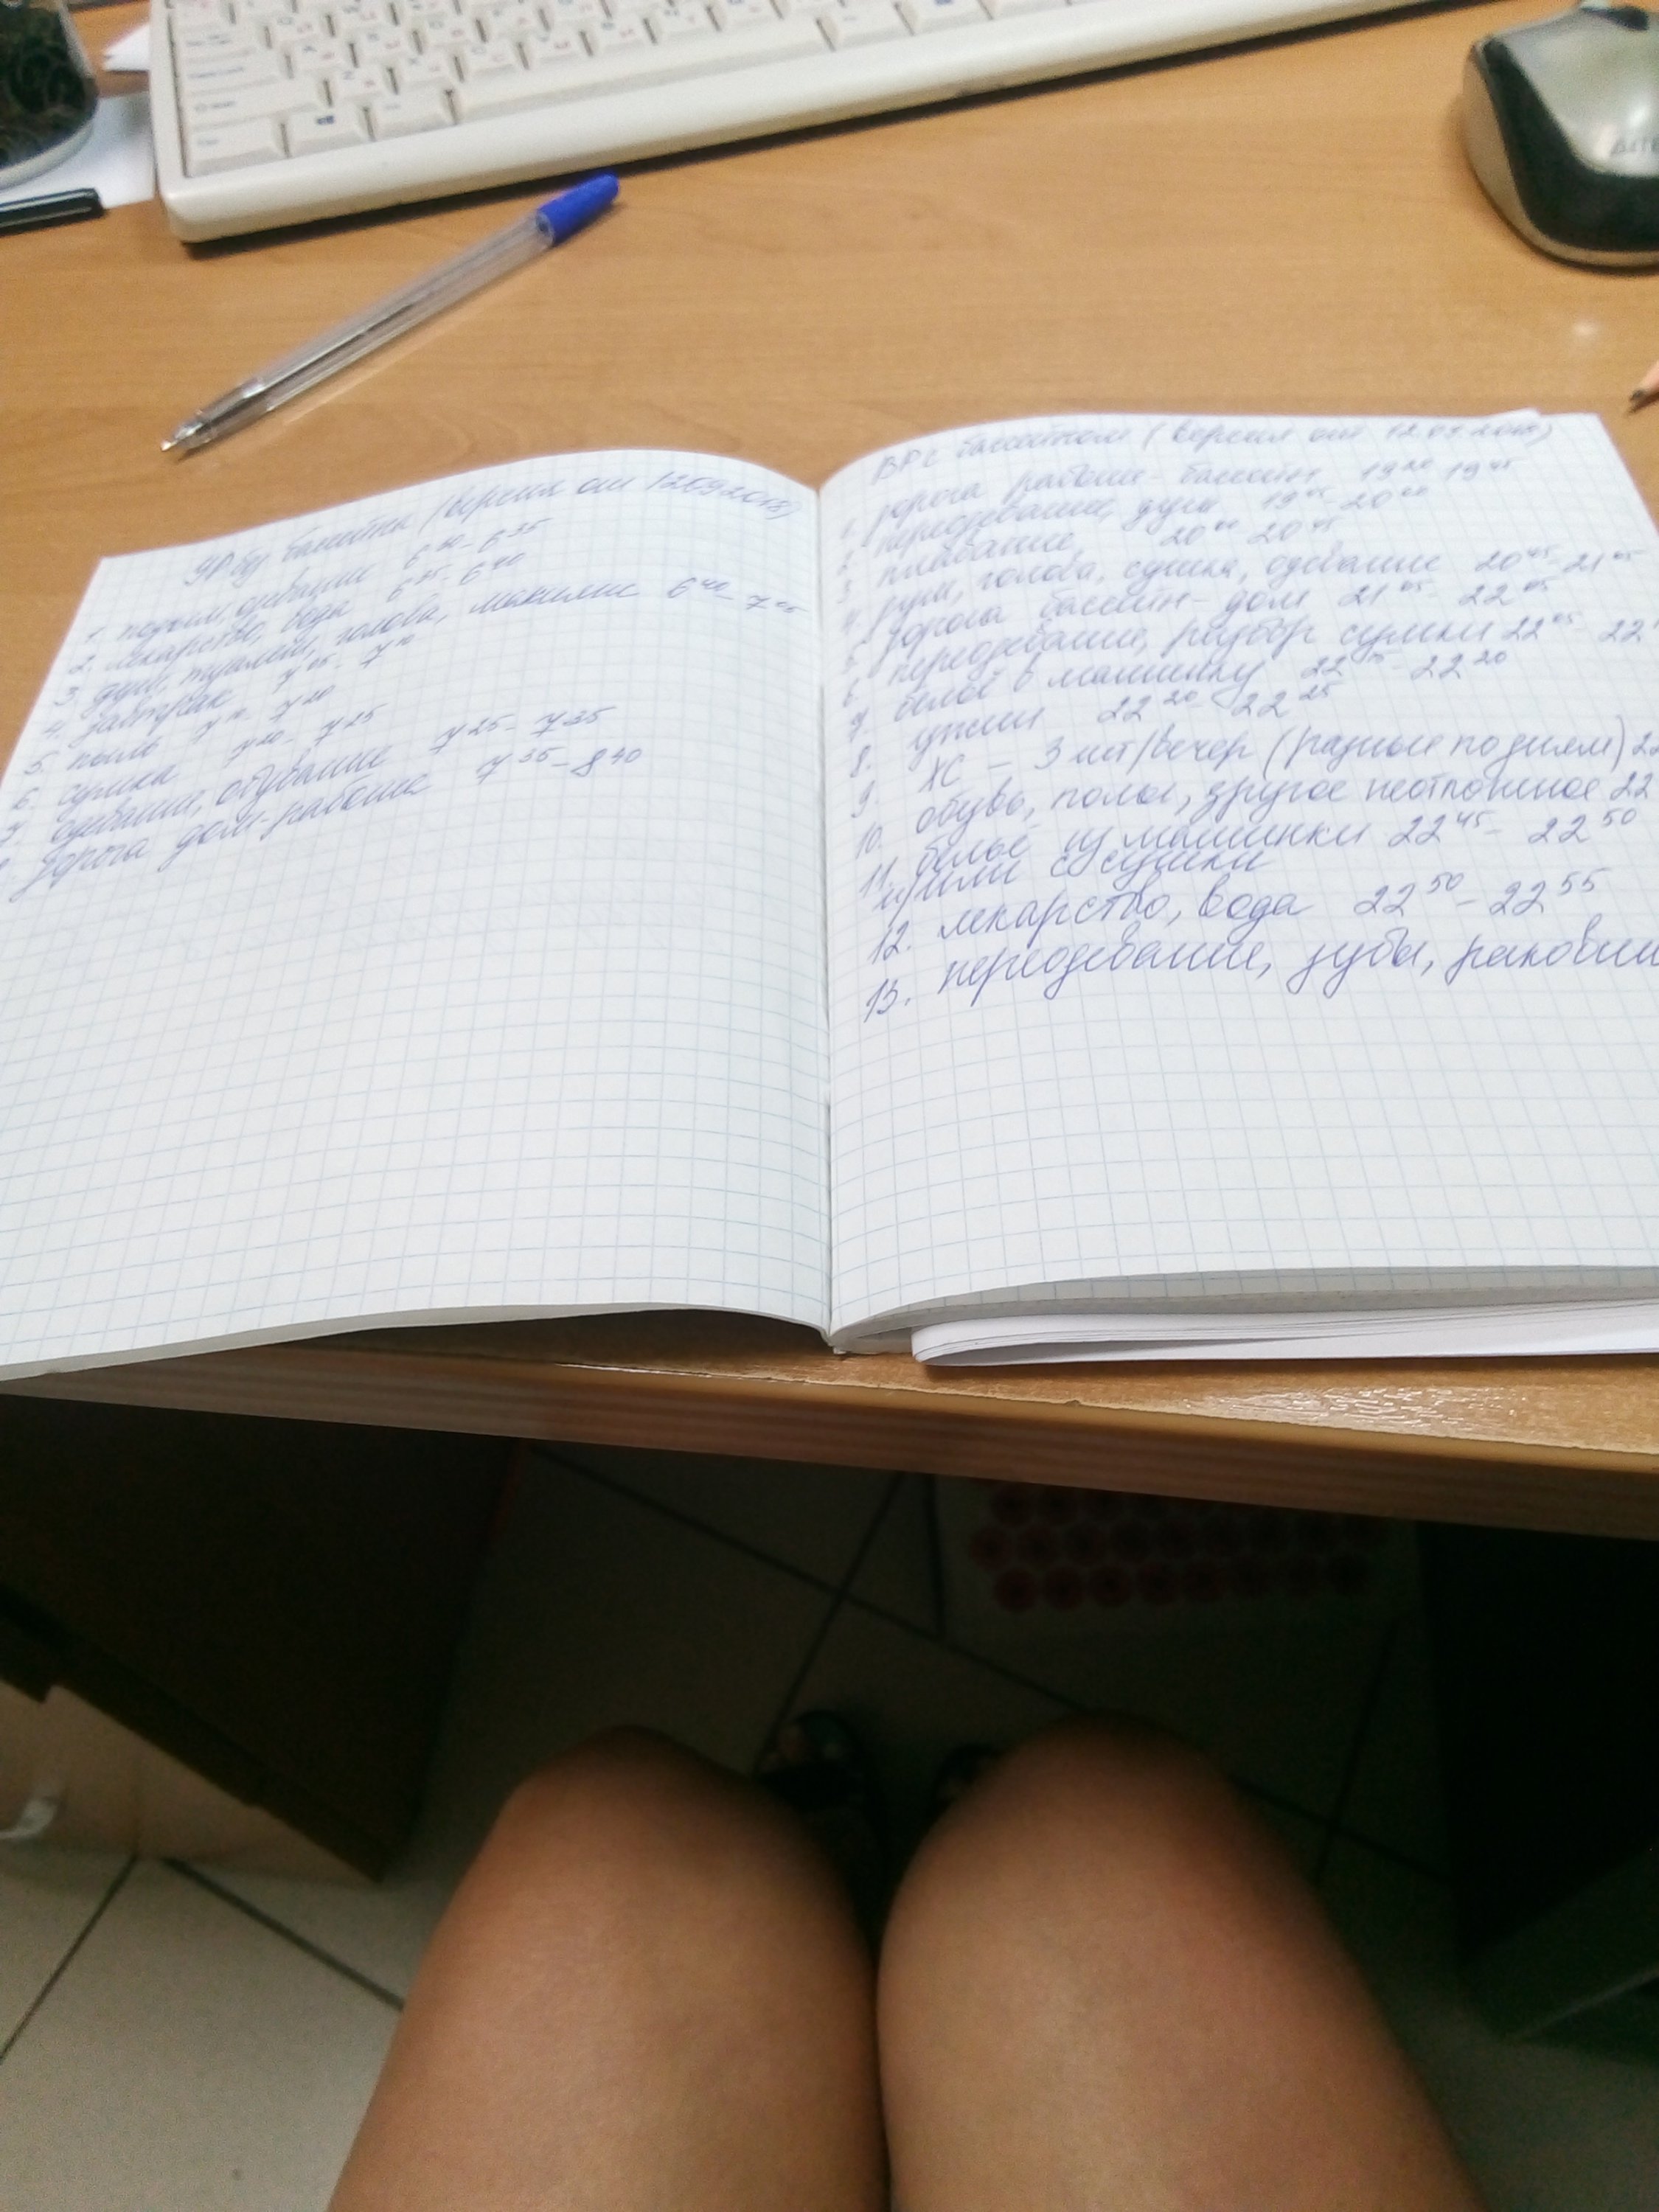 УР без бассейна (версия от 12.09.2018)
1. подъем, одевание 6 30 - 6 35
2. лекарство, вода 6 35 - 6 40
3. душ, туалет, голова, макияж 6 40 - 7 05
4. завтрак 7 05 - 7 15
5. пыль 7 15 - 7 20
6. сумка 7 20 - 7 25
7. одевание, обувание 7 25 - 7 35
дорога дом-работа 7 35 - 8 40
ВР с бассейном (версия от 12.09.2018)
1. дорога работа - бассейн 19 20 19 45
2. переодевание, душ 19 45 - 20 00
3. плавание 20 00 20 45
4. душ, голова, сушка, одевание 20 45 - 21 05
5. дорога бассейн - дом 21 05 - 22 05
6. переодевание, разбор сумки 22 05 - 22
7. бельё в машинку 22 15 - 22 20
8. ужин 22 20 - 22 25
9. ХС - 3 шт/вечер (разные по дням) 22
10. обувь, полы, другое неотложное 22
11. бельё из машинки 22 45 - 22 50
и/или с сушки
12. лекарство, вода 22 50 - 22 55
13. переодевание, зубы,